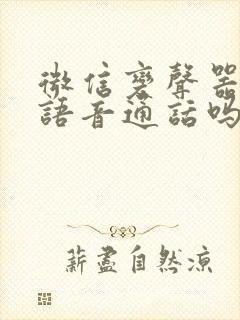 微信变聲器
語音通話吗
薪盡自然涼